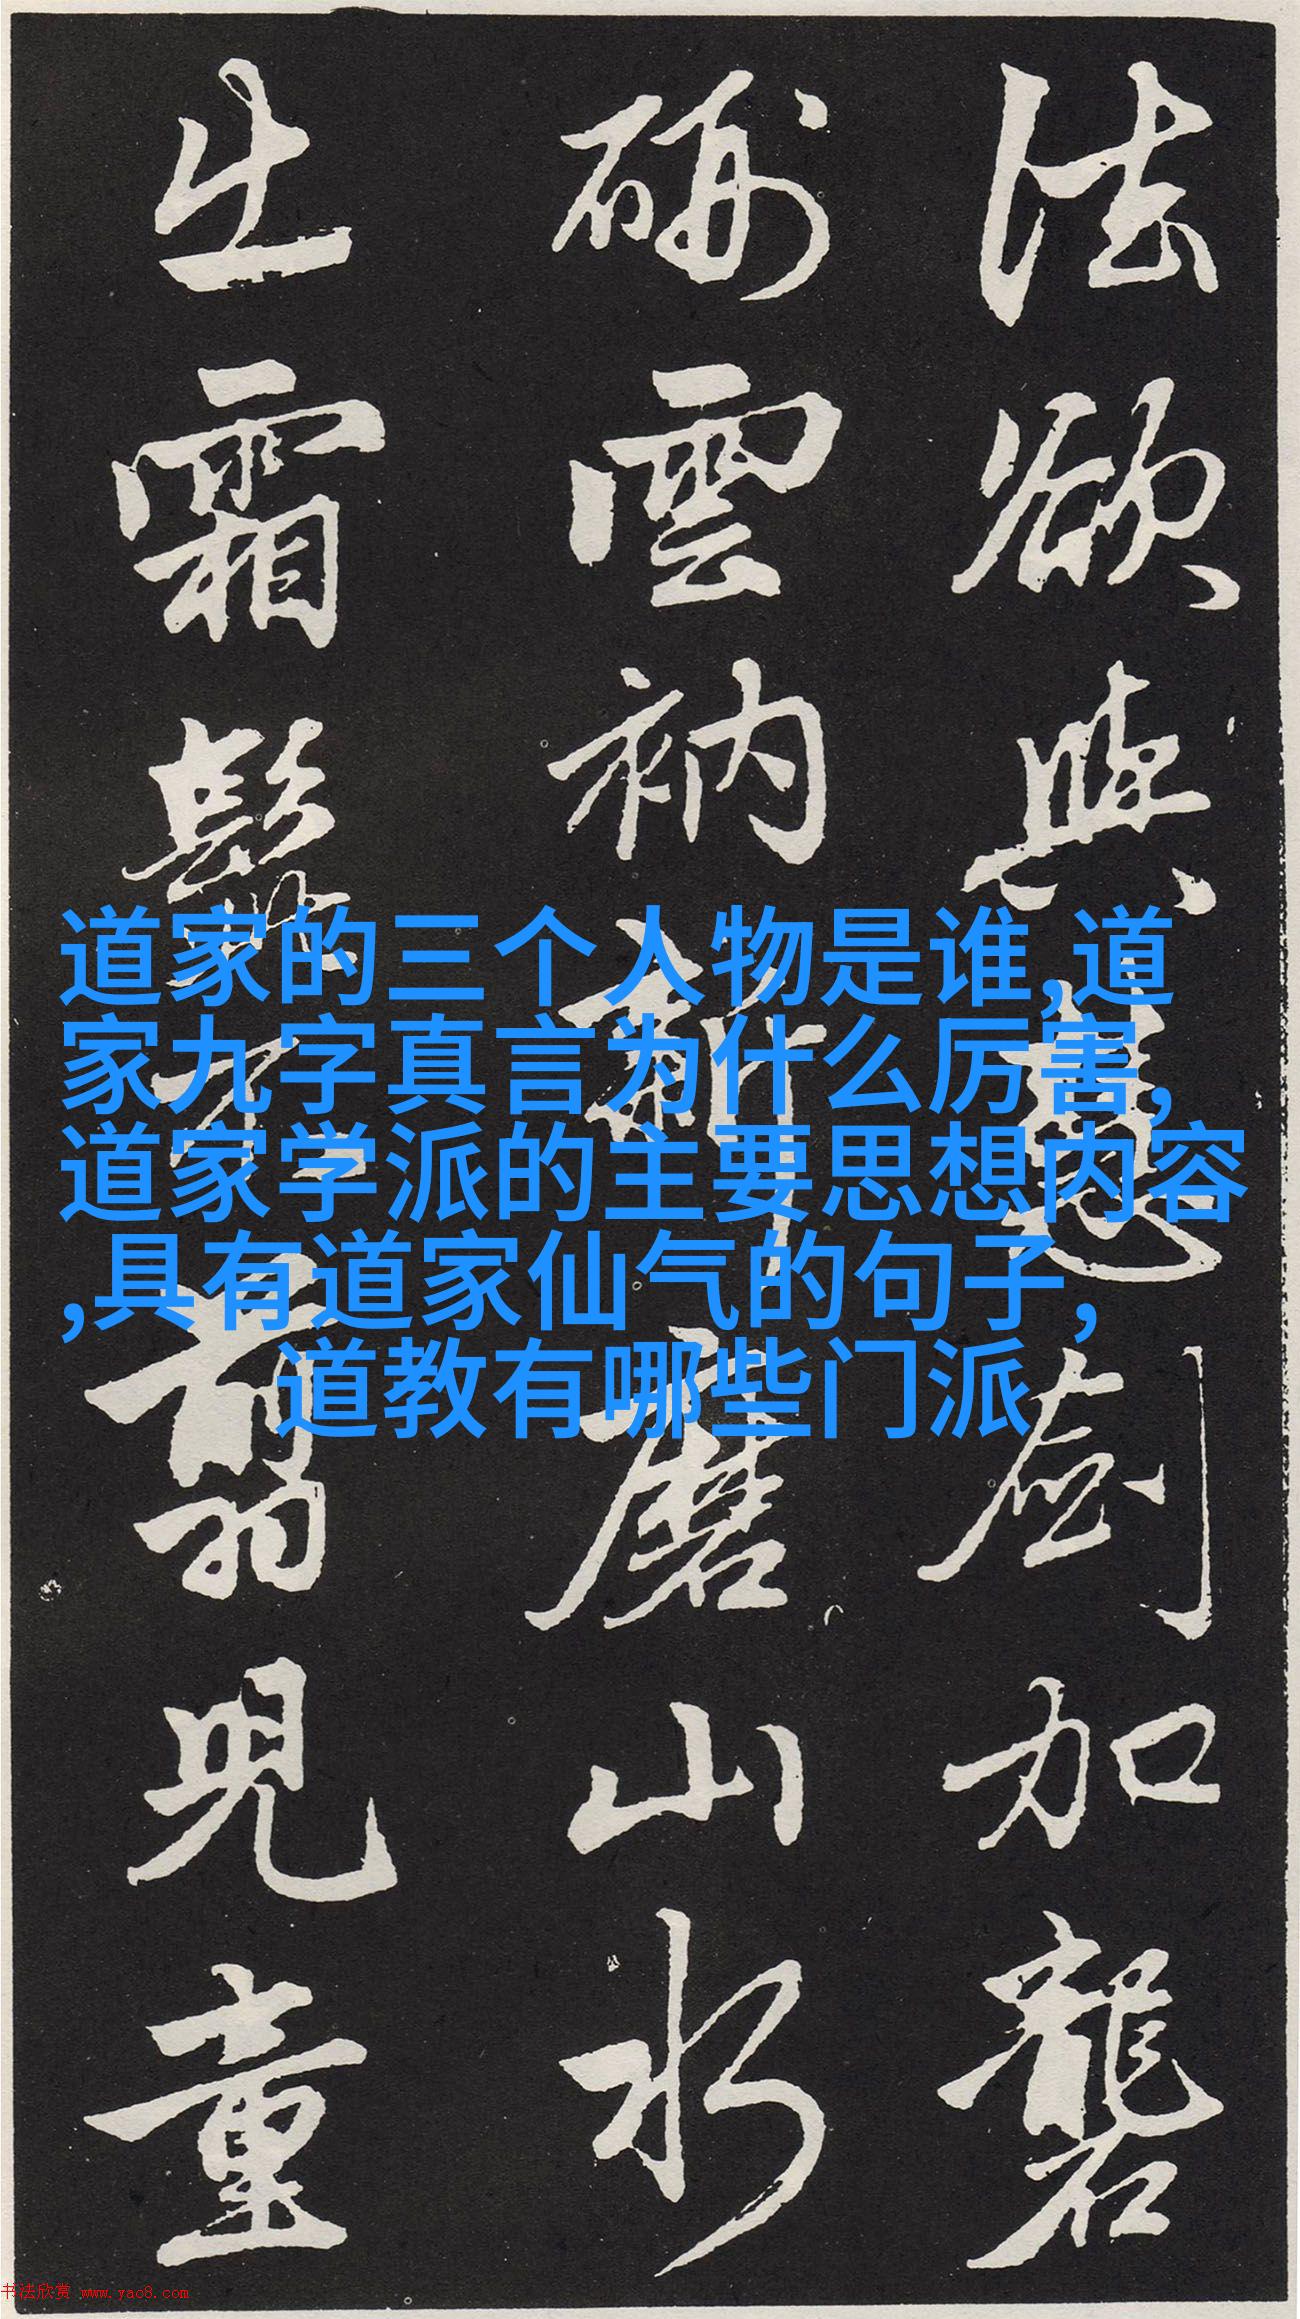 法欲與慧劍加礱
硎雲衲新磨山水
出霜髭不翦兒童
道家的三个人物是谁,道
家九字真言为什么厉害,
道家学派的主要思想内容
,具有道家仙气的句子,
道教有哪些门派
书法欣赏 www.yac8.com